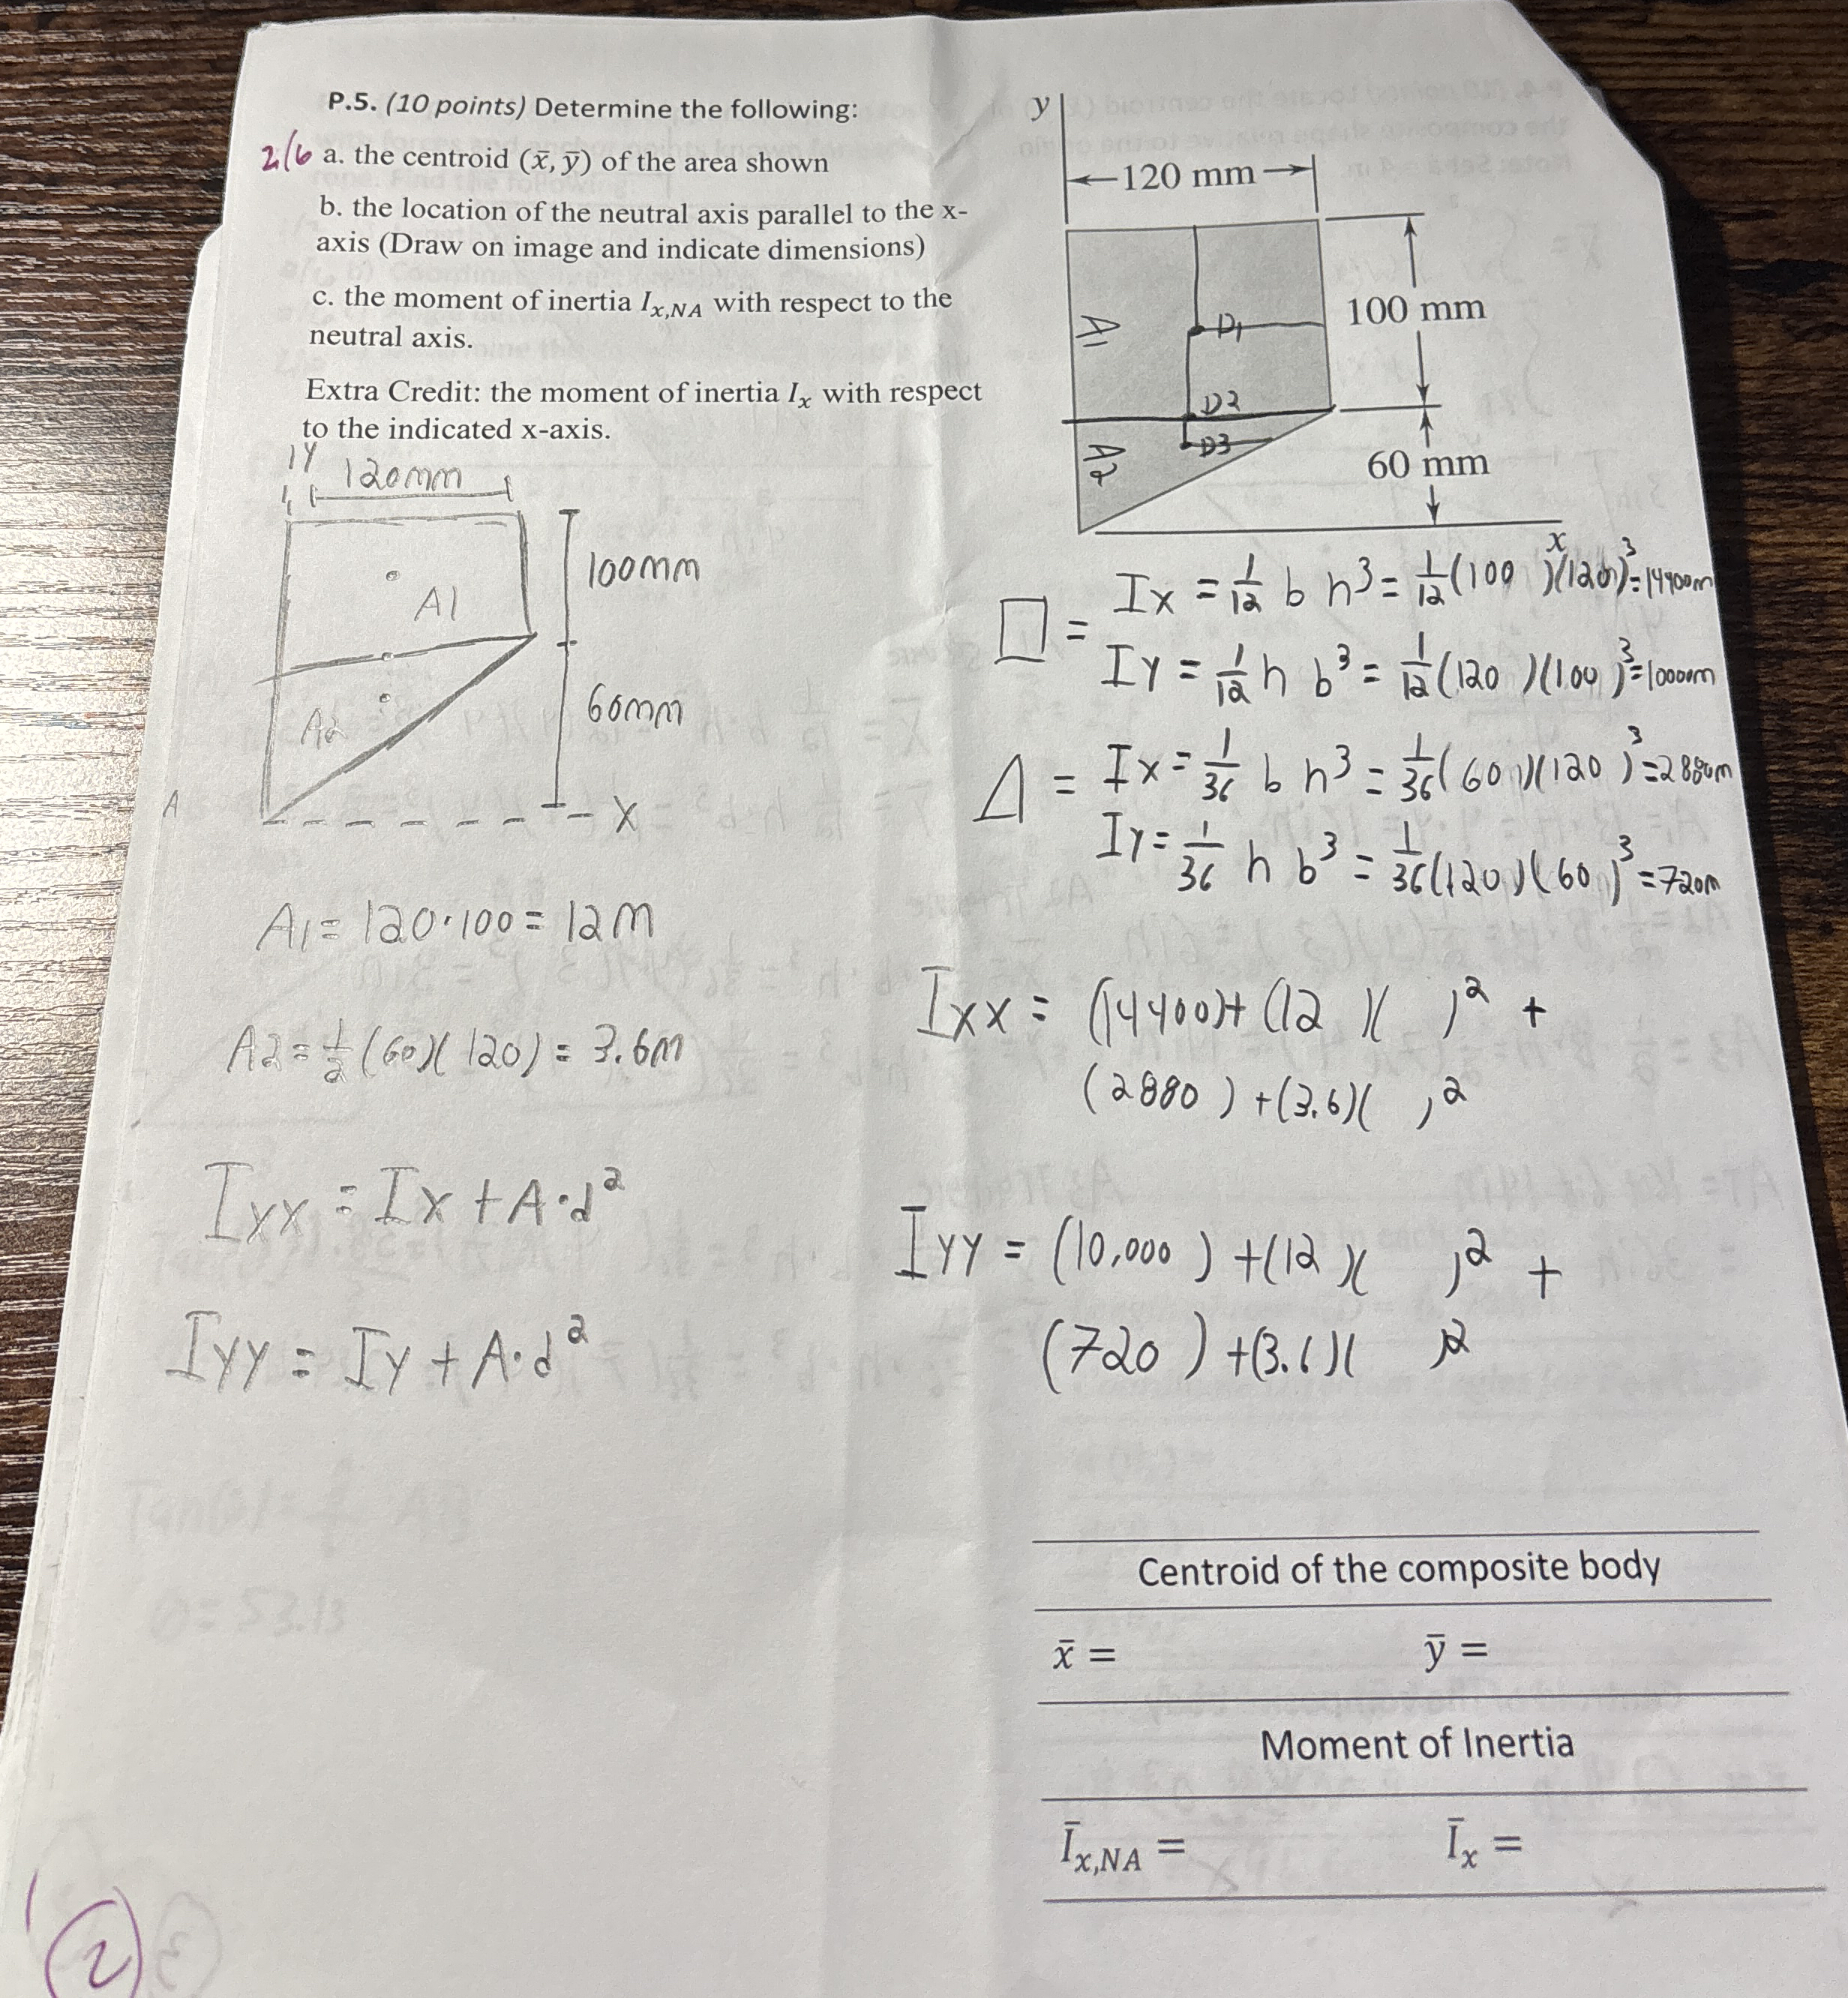 P.5. (10 points) Determine the following:
2/6 a. the centroid (x̄, ȳ) of the area shown
b. the location of the neutral axis parallel to the x-
axis (Draw on image and indicate dimensions)
c. the moment of inertia Ix,NA with respect to the
neutral axis.
Extra Credit: the moment of inertia Ix with respect
to the indicated x-axis.
y
120 mm
100 mm
60 mm
x
A1
D1
D2
D3
A2
Y
120mm
A1
100mm
A2
60mm
X
A
A1 = 120·100 = 12m
A2 = 1/2 (60)(120) = 3.6m
Ixx = Ix + A·d²
Iyy = Iy + A·d²
□ = Ix = 1/12 b h³ = 1/12 (100 )(120)³ = 14400m
Iy = 1/12 h b³ = 1/12 (120 )(100 )³ = 10000m
Δ = Ix = 1/36 b h³ = 1/36 (60 )(120 )³ = 2880m
Iy = 1/36 h b³ = 1/36 (120 )(60 )³ = 720m
Ixx = (14400) + (12 )( )² +
(2880 ) + (3.6)( )²
Iyy = (10,000 ) + (12 )( )² +
(720 ) + (3.6)( )²
Centroid of the composite body
x̄ = ȳ =
Moment of Inertia
Īx,NA = Īx =
2